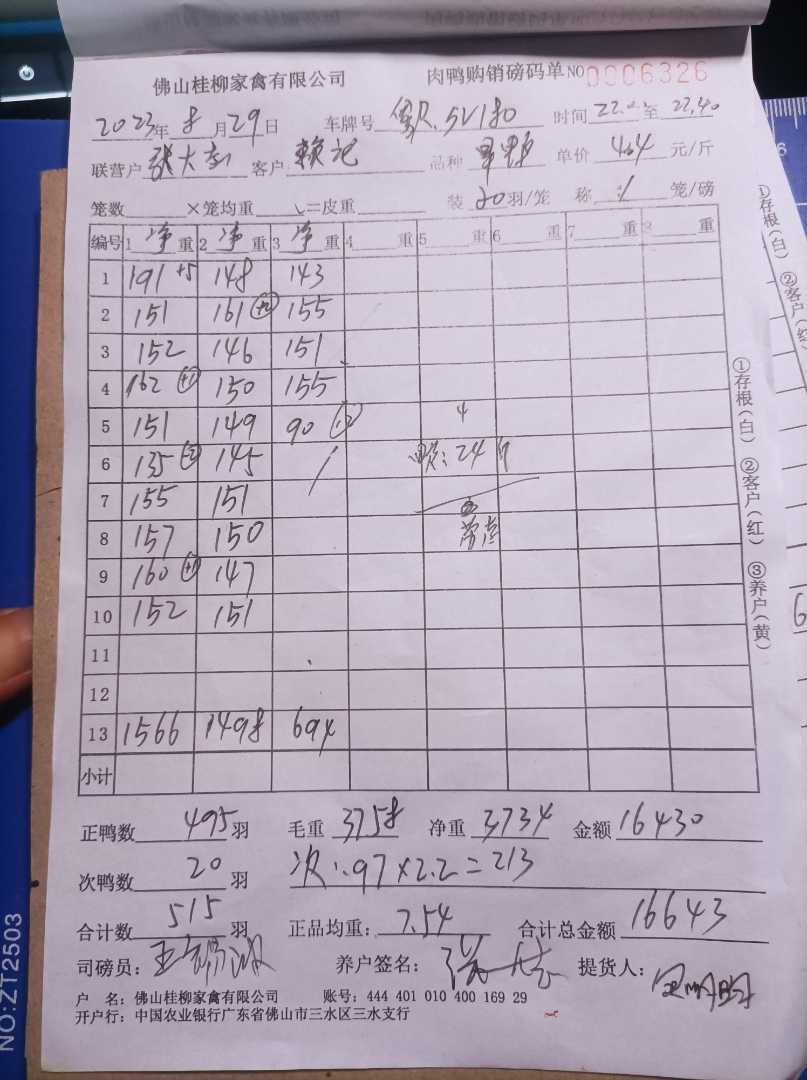 佛山桂柳家禽有限公司 肉鸭购销磅码单 NO 0006326
2023年 8月29日 车牌号 粤R.5V180 时间 22. 至 22.40
联营户 客户 赖记 品种 单价 4.4 元/斤
笼数 ×笼均重 =皮重 装20羽/笼 称 1 笼/磅
编号 1净重 2净重 3净重 4 重 5 重 6 重 7 重 8 重
1 191 +5 148 143
2 151 161 155
3 152 146 151
4 162 150 155
5 151 149 90 -2
6 135 145 : 24
7 155 151
8 157 150
9 160 147
10 152 151
11
12
13 1566 1498 694
小计
正鸭数 495 羽 毛重 3758 净重 3734 金额 16430
次鸭数 20 羽 次: 97×2.2=213
合计数 515 羽 正品均重: 7.54 合计总金额 16643
司磅员: 养户签名: 提货人:
户 名: 佛山桂柳家禽有限公司 账号: 444 401 010 400 169 29
开户行: 中国农业银行广东省佛山市三水区三水支行
①存根(白) ②客户(红) ③养户(黄)
①存根(白) ②客户(红
NO:ZT2503